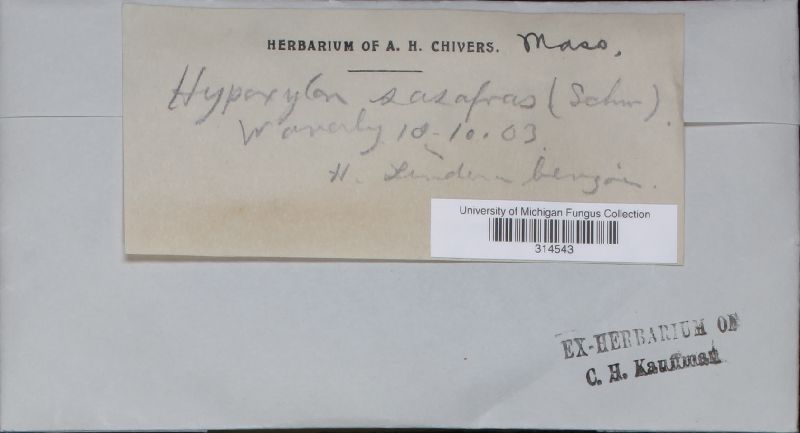 HERBARIUM OF A. H. CHIVERS. Mass,
Hypoxylon sasafras (Schw).
Waverly 10-10.03
H. Lindera benzoin.
University of Michigan Fungus Collection
314543
EX-HERBARIUM OF
C. H. Kauffman